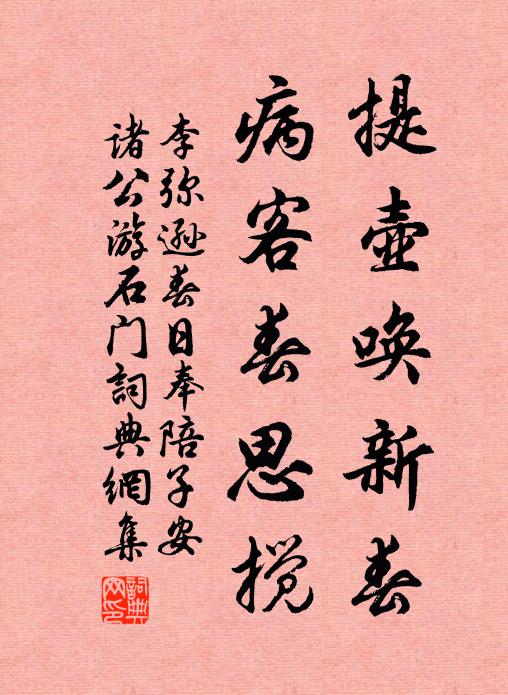 提壶唤新春
病客春思搅
李弥逊春日奉陪子安
诸公游石门词典網集
詞典网印